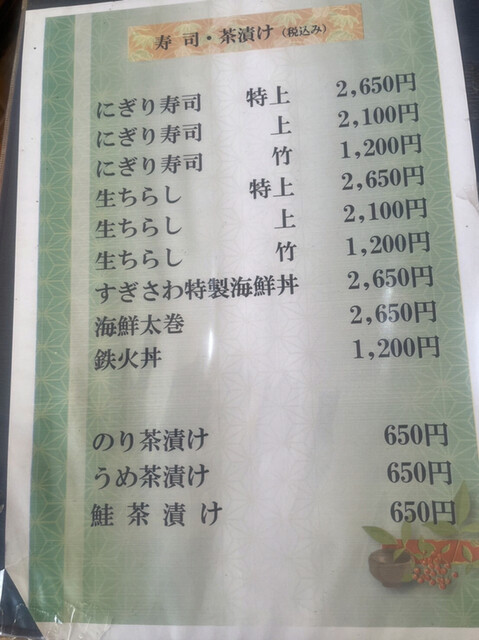 寿司・茶漬け（税込み）
にぎり寿司 特上 2,650円
にぎり寿司 上 2,100円
にぎり寿司 竹 1,200円
生ちらし 特上 2,650円
生ちらし 上 2,100円
生ちらし 竹 1,200円
すぎさわ特製海鮮丼 2,650円
海鮮太巻 2,650円
鉄火丼 1,200円
のり茶漬け 650円
うめ茶漬け 650円
鮭茶漬け 650円